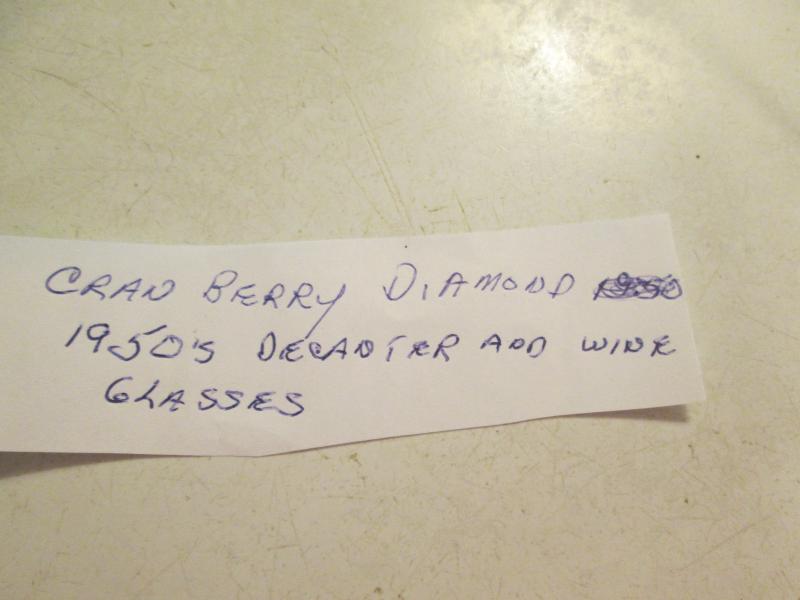 CRAN BERRY DIAMOND
1950's DECANTER AND WINE
GLASSES